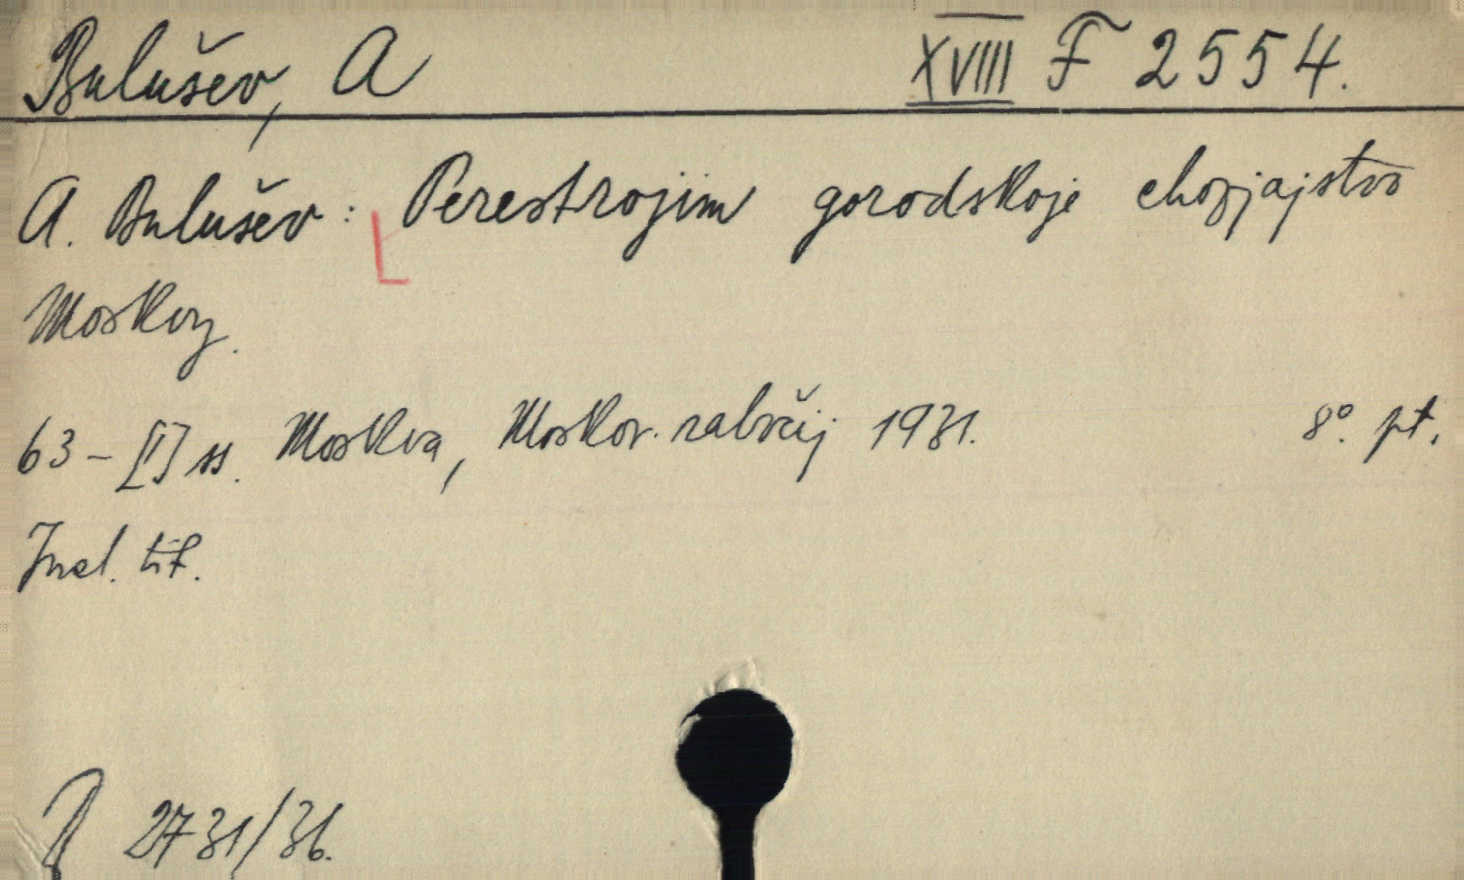 Bulušev, A XVIII F 2554.
A. Bulušev: Perestrojim gorodskoje chozjajstvo
Moskvy.
63-[I] ss. Moskva, Moskov. rabočij 1931. 8°. pt.
Incl. tit.
2731/36.